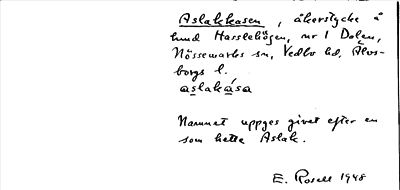 Aslakkasen, åkerstycke å
hmd Hasslehögen, nr 1 Dolen,
Nössemarks sn, Vedbo hd, Älvs-
borgs l.
aslakása
Namnet uppges givet efter en
som hette Aslak.
E. Rosell 1948